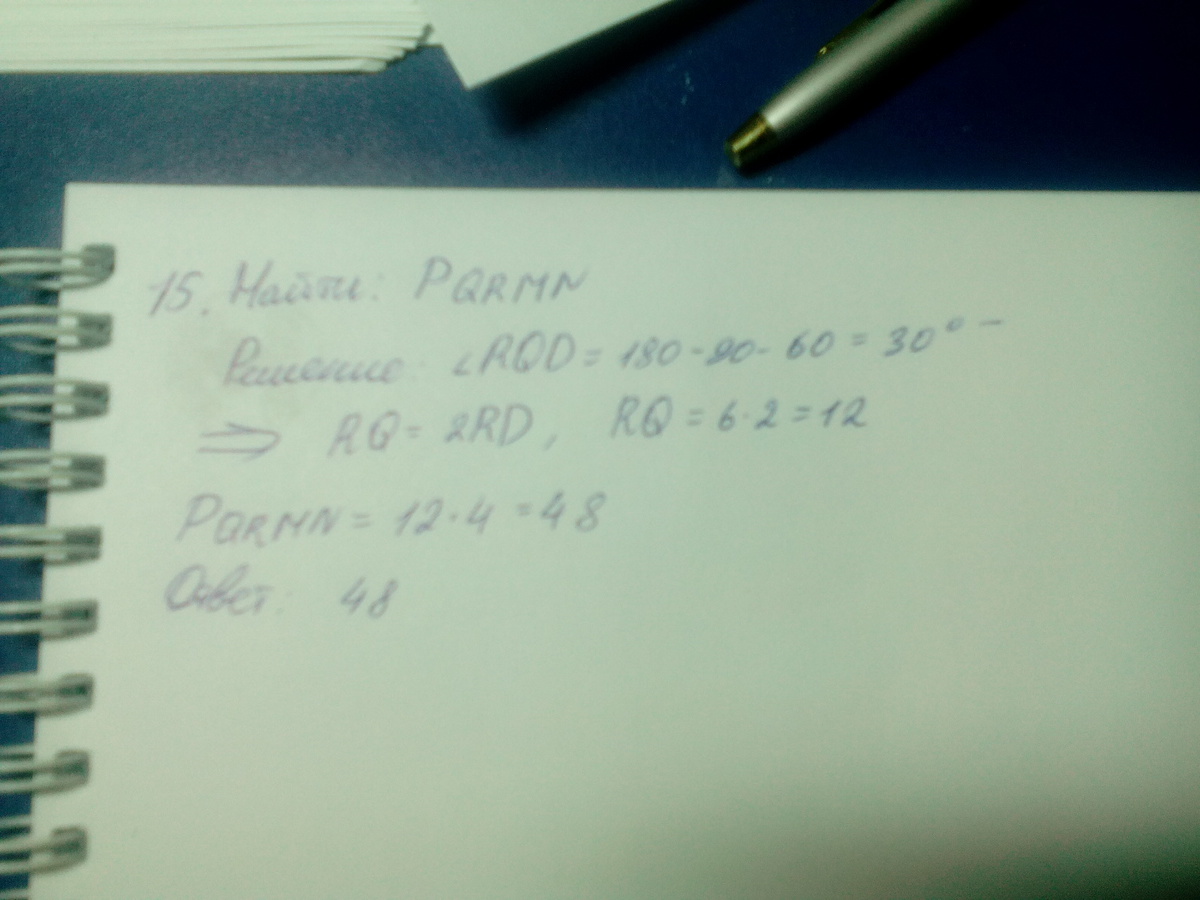 15. Найти: PQRMN
Решение: ∠RQD = 180-90-60 = 30° -
⇒ RQ = 2RD, RQ = 6·2 = 12
PQRMN = 12·4 = 48
Ответ: 48